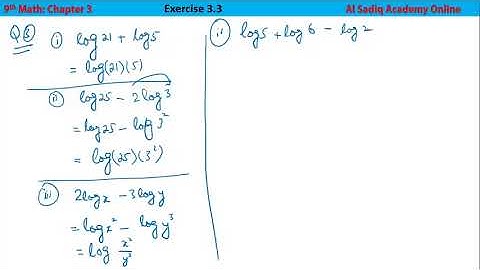 9th Math: Chapter 3 Exercise 3.3 Al Sadiq Academy Online
Q3
i) log 21 + log5
= log(21)(5)
ii) log25 - 2log3
= log25 - log3²
= log(25)(3²)
iii) 2logx - 3logy
= logx² - logy³
= log x²/y³
ii) log5 + log6 - log2